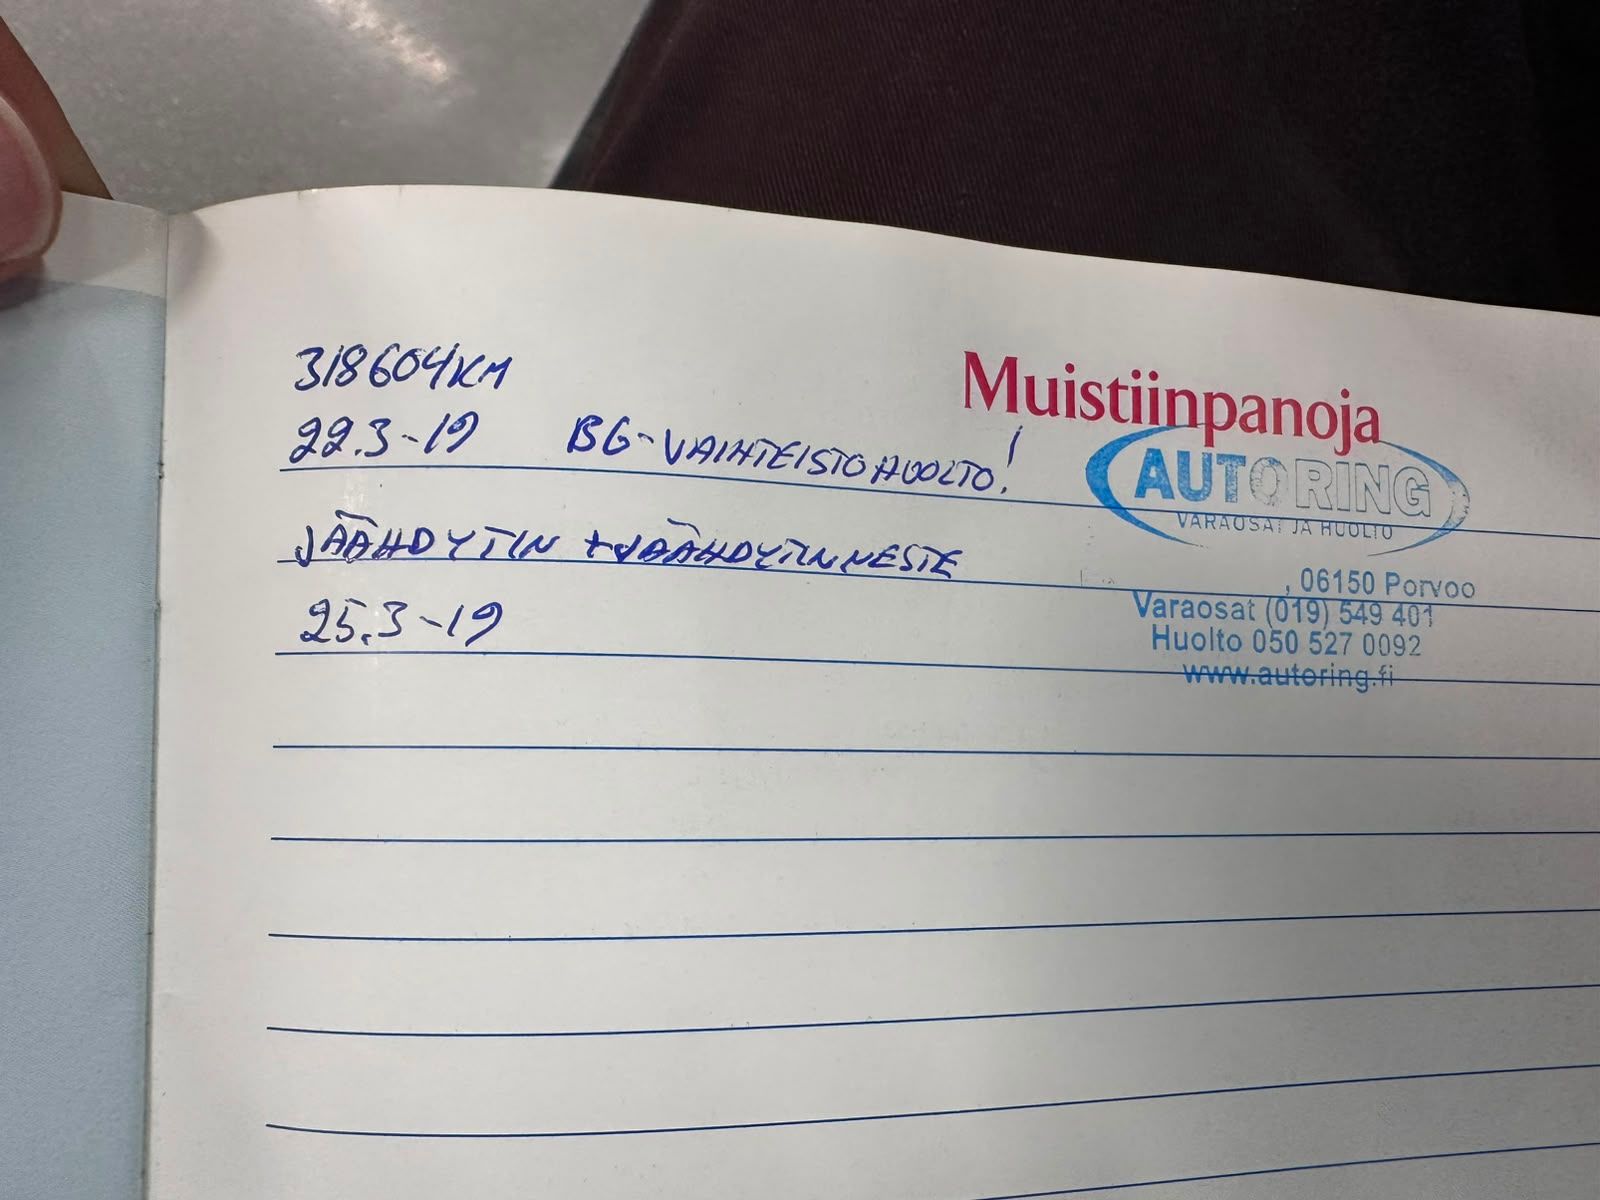 318604KM
22.3-19 BG-VAIHTEISTOHUOLTO!
JÄÄHDYTIN + JÄÄHDYTINNESTE
25.3-19
Muistiinpanoja
AUTORING
VARAOSAT JA HUOLTO
, 06150 Porvoo
Varaosat (019) 549 401
Huolto 050 527 0092
www.autoring.fi